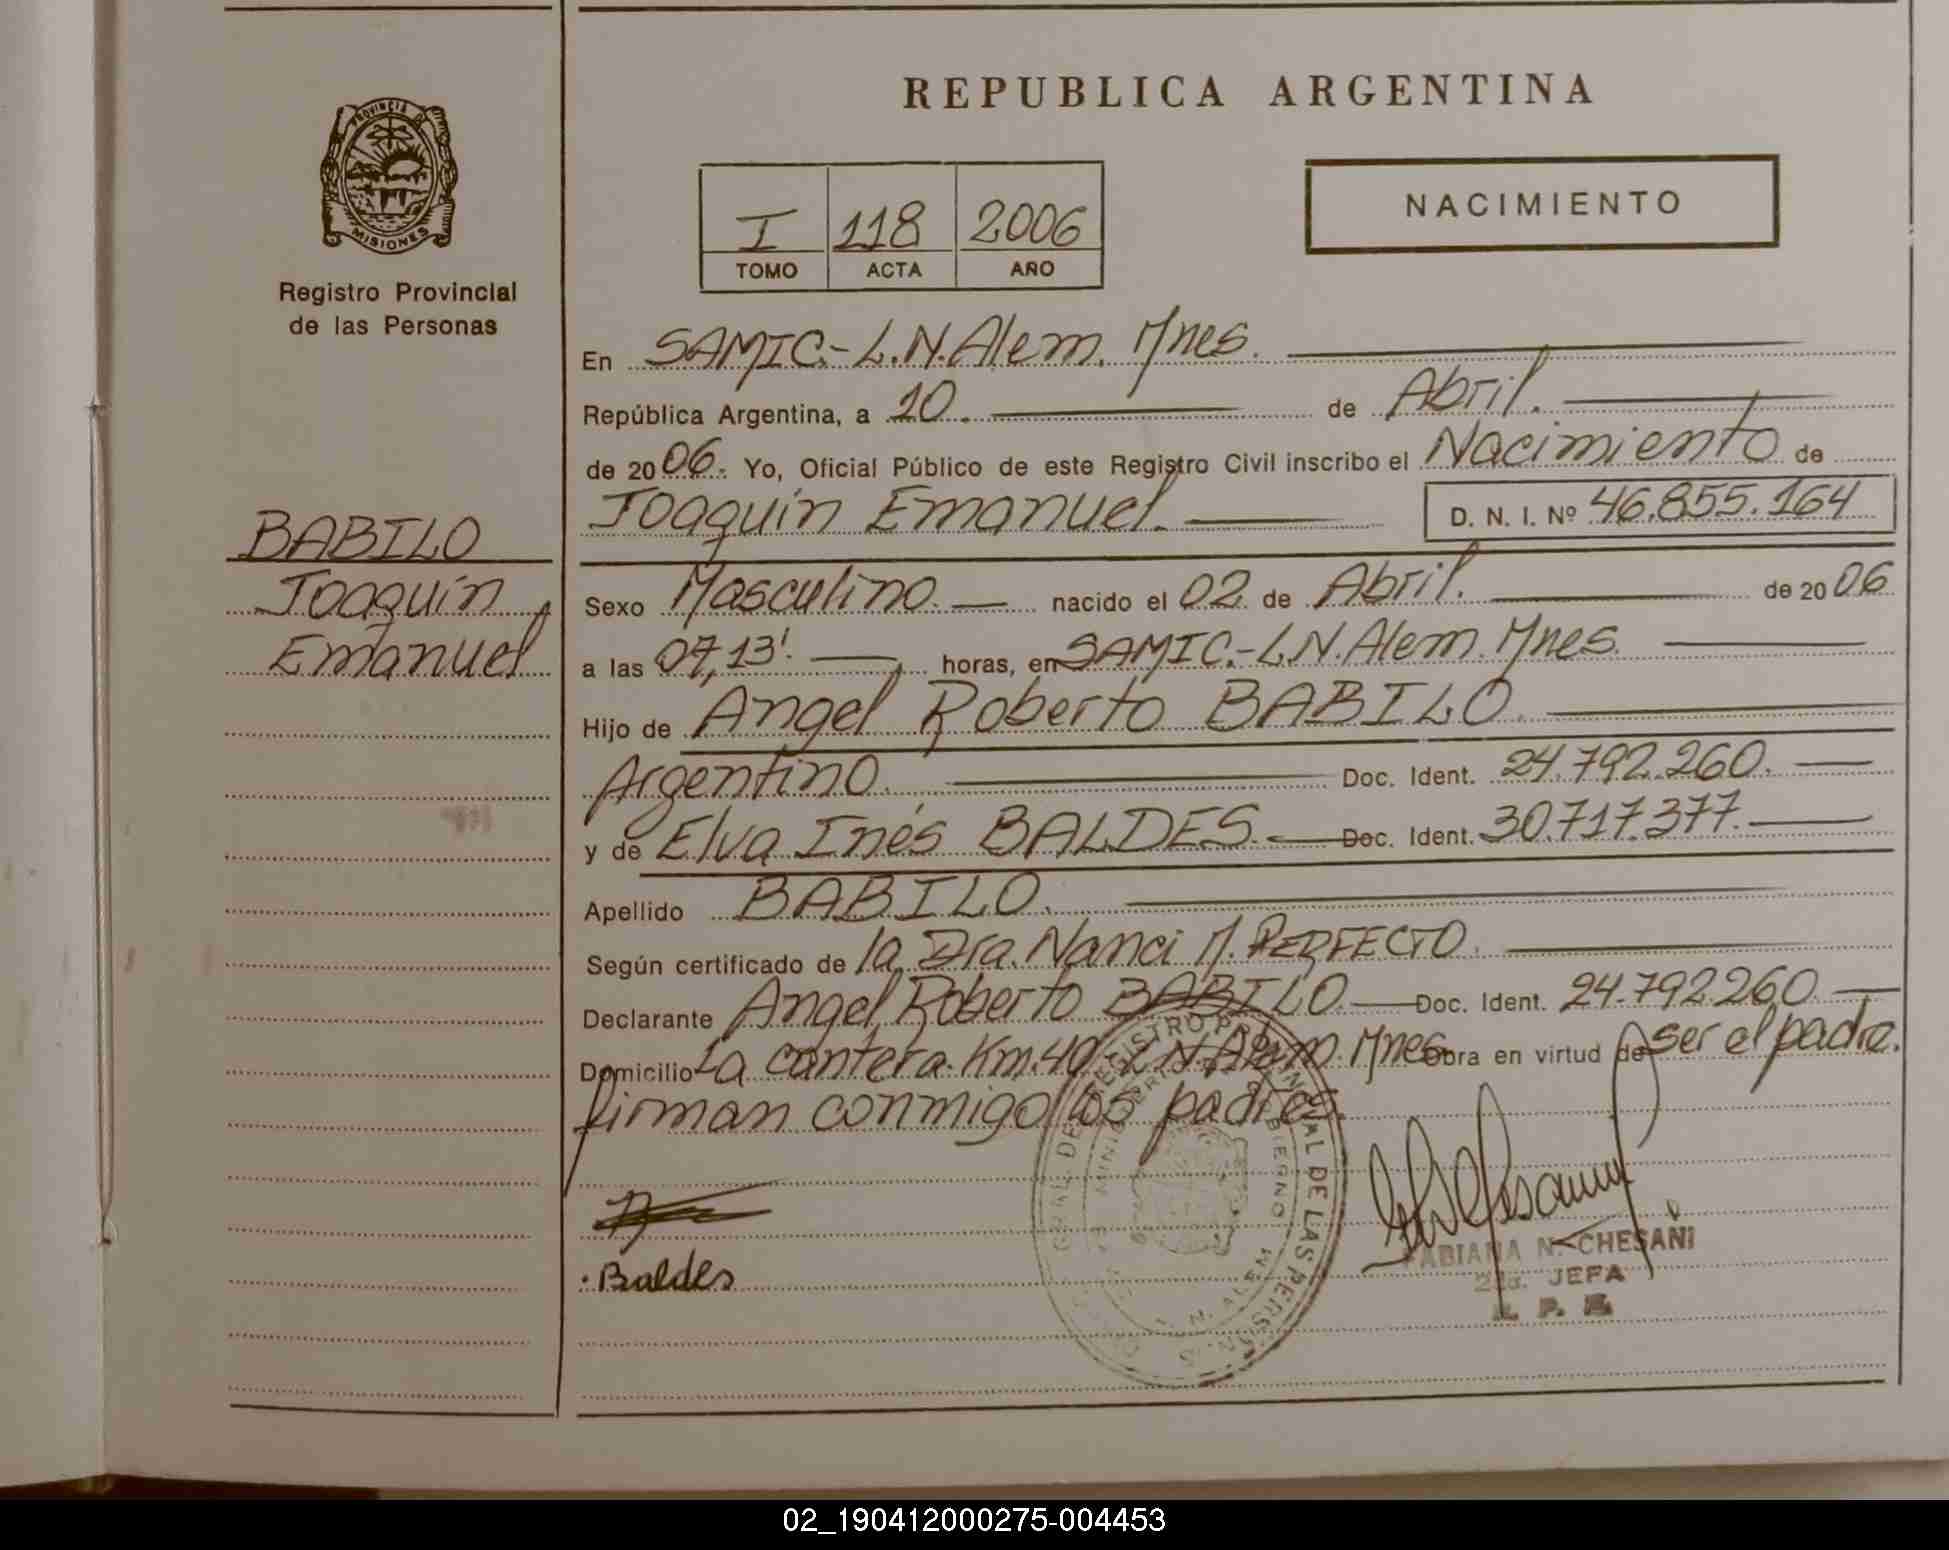 REPUBLICA ARGENTINA
PROVINCIA DE
MISIONES
Registro Provincial
de las Personas
I 118 2006
TOMO ACTA AÑO
NACIMIENTO
BABILO
Joaquín
Emanuel
En SAMIC.-L.N.Alem. Mnes.
República Argentina, a 10. de Abril.
de 2006. Yo, Oficial Público de este Registro Civil inscribo el Nacimiento de
Joaquín Emanuel. D. N. I. Nº 46.855.164
Sexo Masculino. nacido el 02 de Abril. de 2006
a las 07,13'. horas, en SAMIC.-L.N.Alem. Mnes.
Hijo de Angel Roberto BABILO.
Argentino. Doc. Ident. 24.792.260.
y de Elva Inés BALDES. Doc. Ident. 30.717.377.
Apellido BABILO.
Según certificado de la Dra. Nanci M. PERFECTO.
Declarante Angel Roberto BABILO. Doc. Ident. 24.792.260
Domicilio La cantera. Km.40. L.N.Alem. Mnes. Obra en virtud de ser el padre.
firman conmigo los padres.
Baldes
REGISTRO PROVINCIAL DE LAS PERSONAS
L. N. ALEM
FABIANA N. CHESANI
2da. JEFA
R. P. P.
02_190412000275-004453